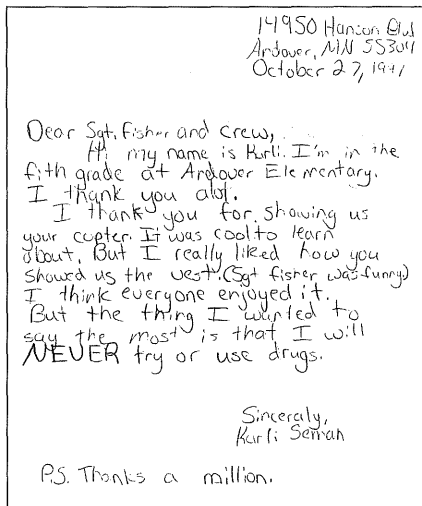 14950 Hanson Blvd
Andover, MN 55304
October 27, 19
Dear Sgt. Fisher and crew,
Hi my name is Karli. I'm in the
fith grade at Andover Elementary.
I thank you alot.
I thank you for showing us
your copter. It was cool to learn
about. But I really liked how you
showed us the vest. (Sgt fisher was funny)
I think everyone enjoyed it.
But the thing I wanted to
say the most is that I will
NEVER try or use drugs.
Sinceraly,
Karli
P.S. Thanks a million.